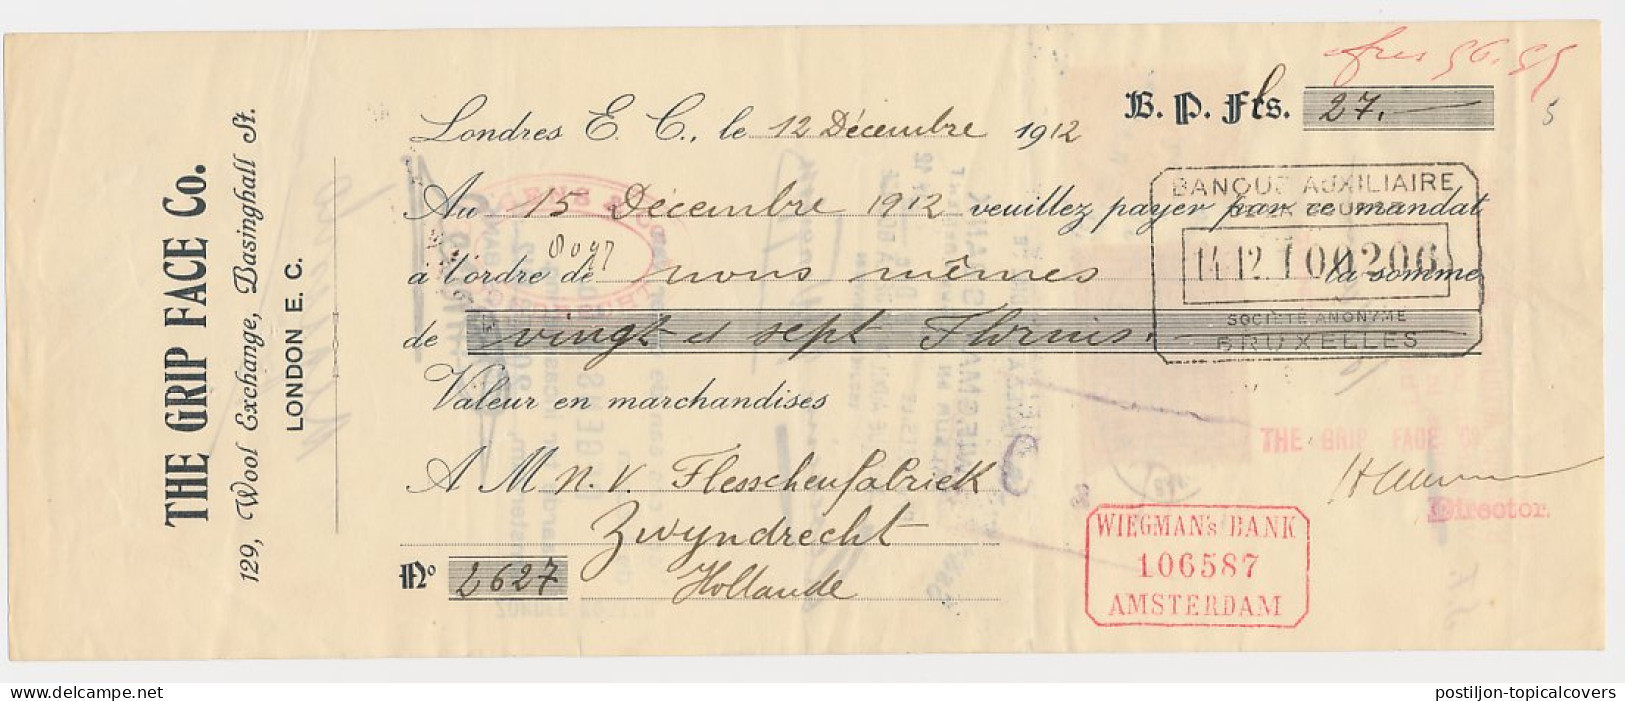 THE GRIP FACE Co.
129, Wool Exchange, Basinghall St.
LONDON E. C.
frcs 56.55
B. P. Fcs. 27.—
5
Londres E. C., le 12 Décembre 1912
Au 15 Décembre 1912 veuillez payer par ce mandat
à l'ordre de nous mêmes la somme
de vingt et sept Florins.
Valeur en marchandises
A M N.V. Flesschenfabriek
Zwyndrecht
Hollande
No 2627
BANQUE AUXILIAIRE
DE LA BOURSE
14.12.100206
SOCIÉTÉ ANONYME
BRUXELLES
THE GRIP FACE Co
Director.
WIEGMAN's BANK
106587
AMSTERDAM
postiljon-topicalcovers